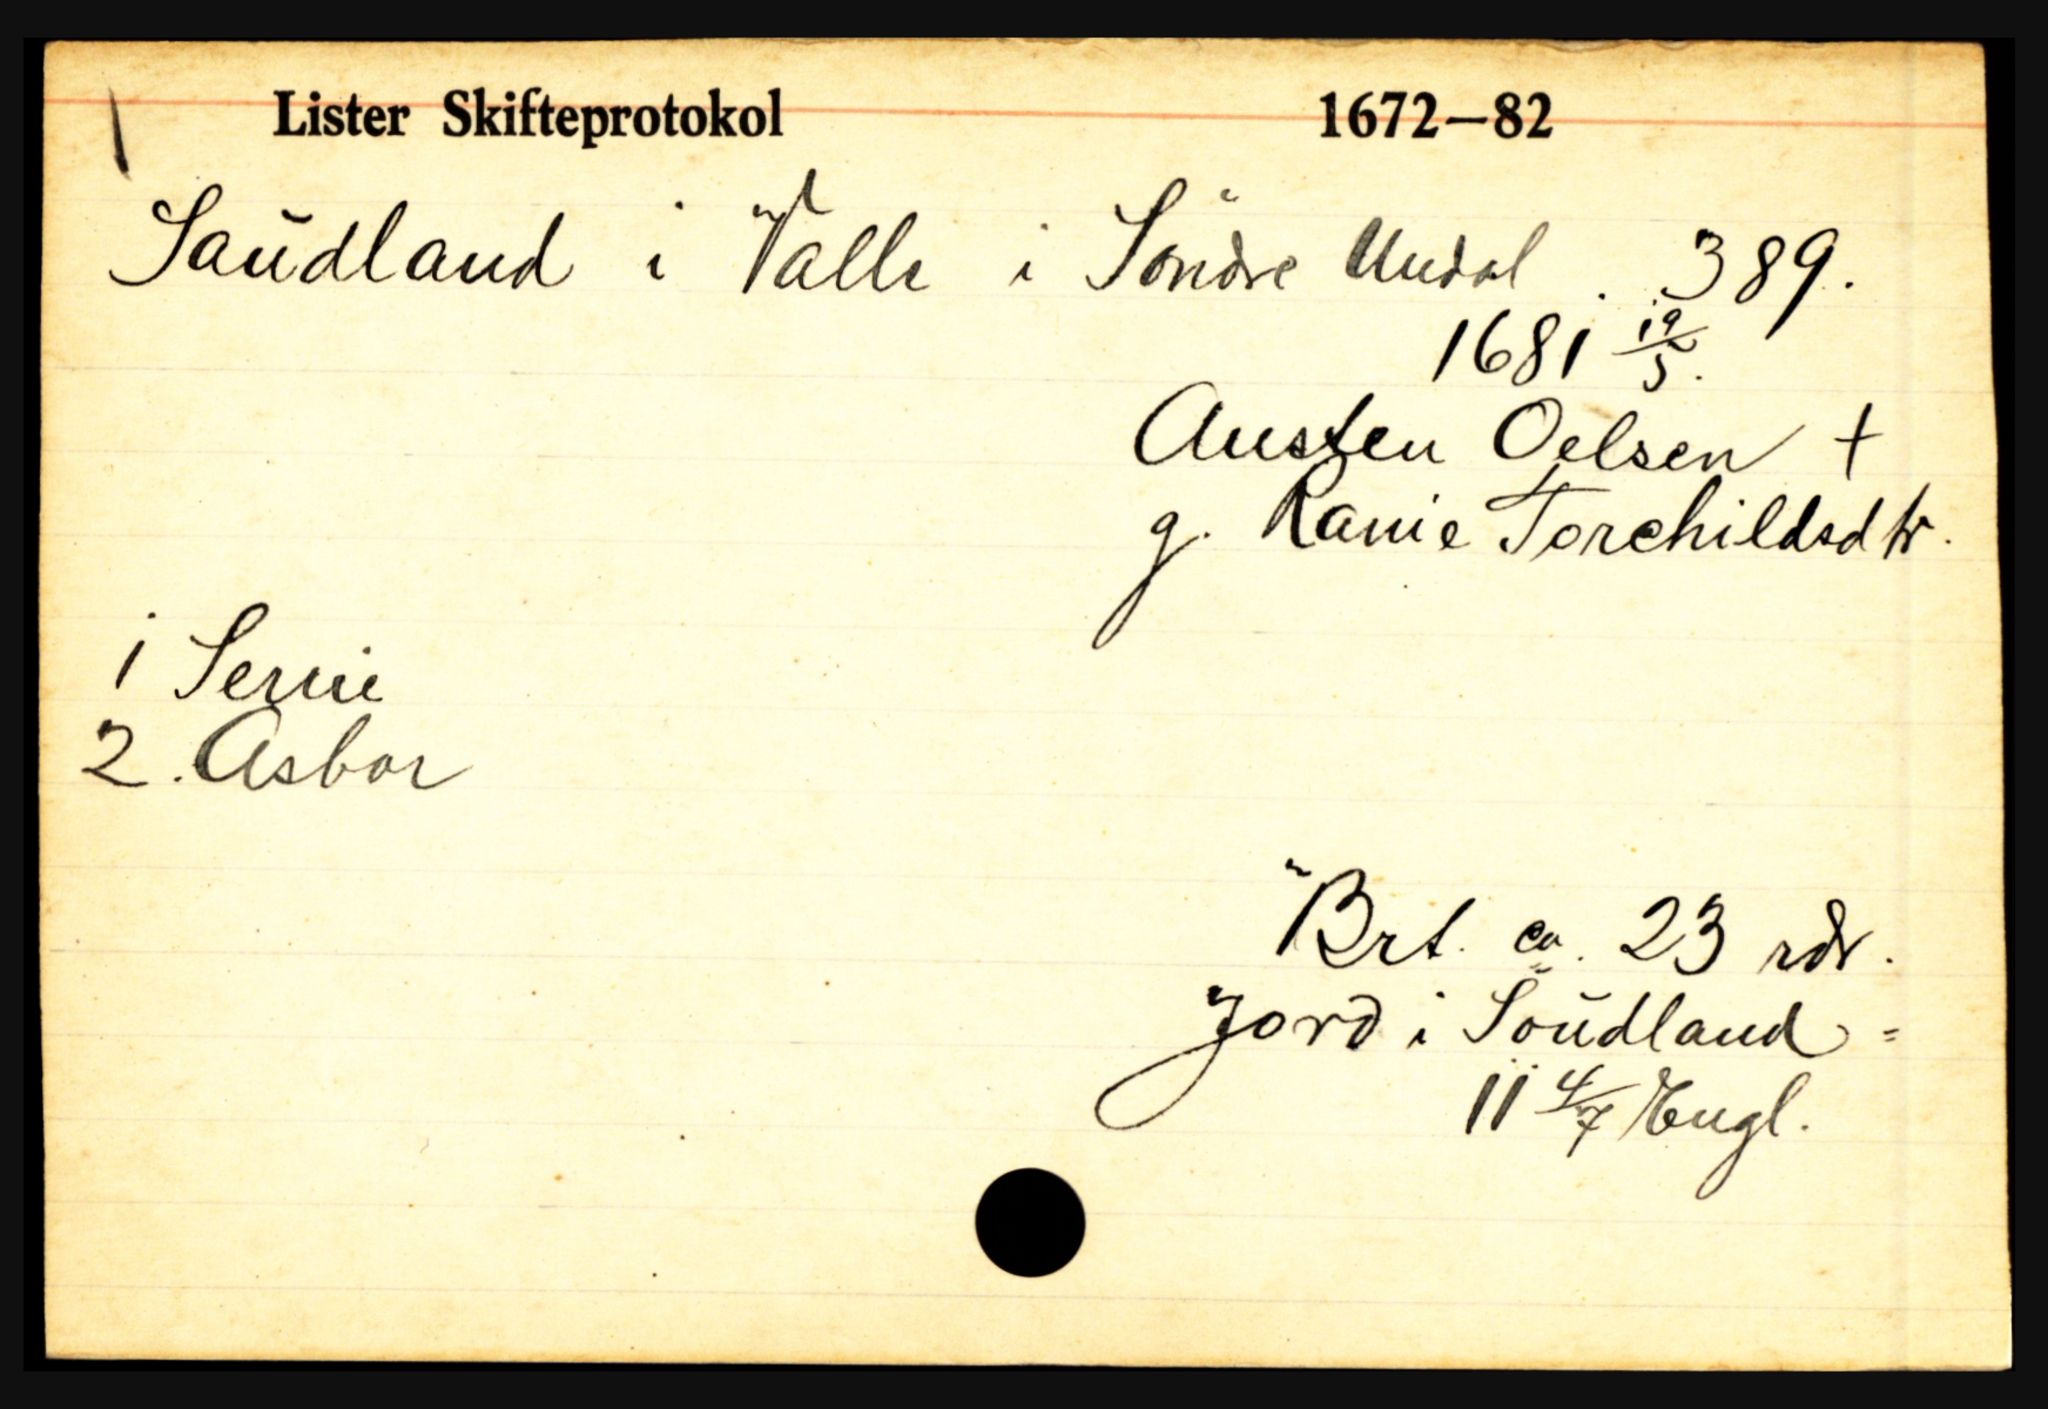 Lister Skifteprotokol 1672—82
Saudland i Valle i Söndre Undal . 389.
1681 19/5.
Austen Oelsen +
g. Ranie Torchildsdtr.
1 Serine
2. Asbor
Brt. ca. 23 rdr.
Jord i Soudland =
11 4/7 Engl.